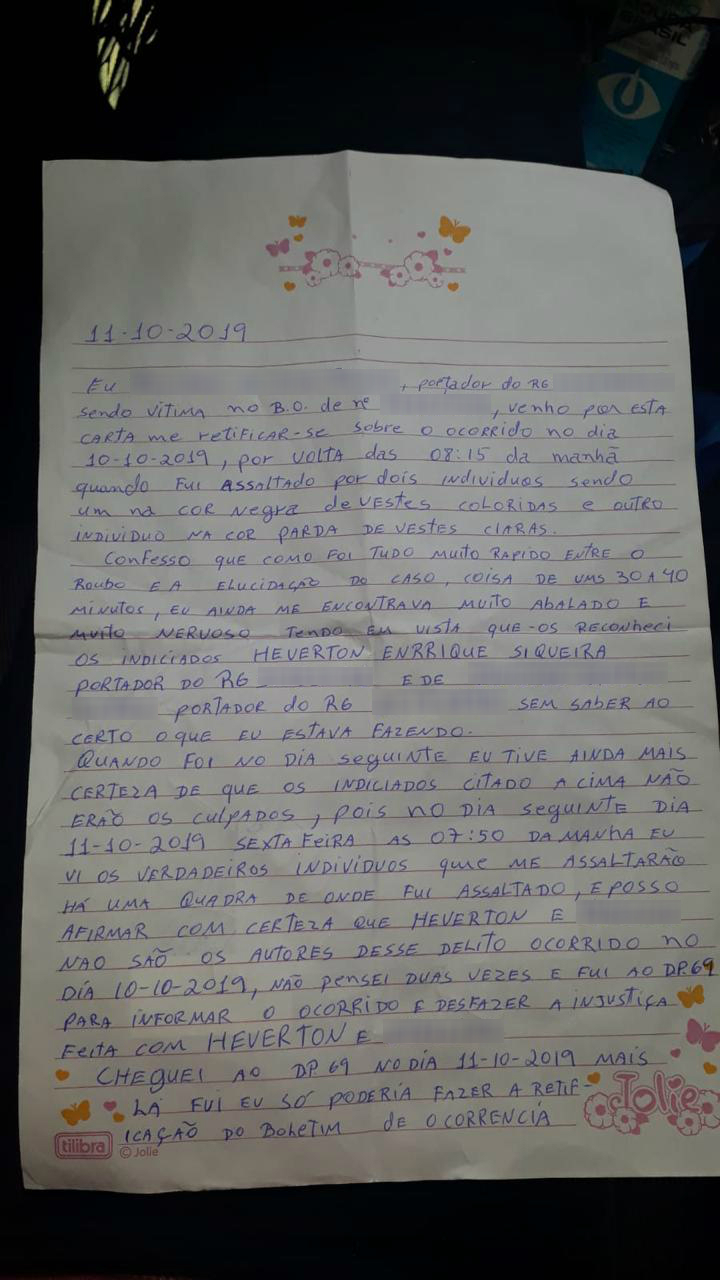 BRASIL
11-10-2019
EU , portador do RG
sendo vítima no B.O. de nº , venho por ESTA
CARTA me retificar-se sobre o ocorrido no dia
10-10-2019, por VOLTA das 08:15 da manhã
quando FUI ASSALTADO por dois indivíduos sendo
um na COR Negra de VESTES COLORIDAS e OUTRO
INDIVIDUO NA COR PARDA DE VESTES CLARAS.
CONFESSO QUE COMO FOI TUDO MUITO RAPIDO ENTRE O
ROUBO E A ELUCIDAÇÃO DO CASO, COISA DE UMS 30 A 40
MINUTOS, EU AINDA ME ENCONTRAVA MUITO ABALADO E
MUITO NERVOSO TENDO EM VISTA QUE-OS RECONHECI
OS INDICIADOS HEVERTON ENRRIQUE SIQUEIRA
PORTADOR DO RG E DE
PORTADOR do RG SEM SABER AO
CERTO O QUE EU ESTAVA FAZENDO.
QUANDO FOI NO DIA seguinte EU TIVE AINDA MAIS
CERTEZA DE QUE OS INDICIADOS CITADO A CIMA NÃO
ERÃO OS CULPADOS, pois no DIA seguinte DIA
11-10-2019 SEXTA FEIRA AS 07:50 DA MANHA EU
VI OS VERDADEIROS INDIVÍDUOS que ME ASSALTARÃO
HÁ UMA QUADRA DE ONDE FUI ASSALTADO, E POSSO
AFIRMAR COM CERTEZA QUE HEVERTON E
NAO SÃO OS AUTORES DESSE DELITO OCORRIDO NO
DÍA 10-10-2019, NÃO PENSEI DUAS VEZES E FUI AO DP.69
PARA INFORMAR O OCORRIDO E DESFAZER A INJUSTIÇA
FEITA COM HEVERTON E
CHEGUEI AO DP 69 NO DIA 11-10-2019 MAIS
LÁ FUI EU SÓ PODERIA FAZER A RETIF-
ICAÇÃO DO BOLETIM de OCORRENCIA
Jolie
tilibra © Jolie